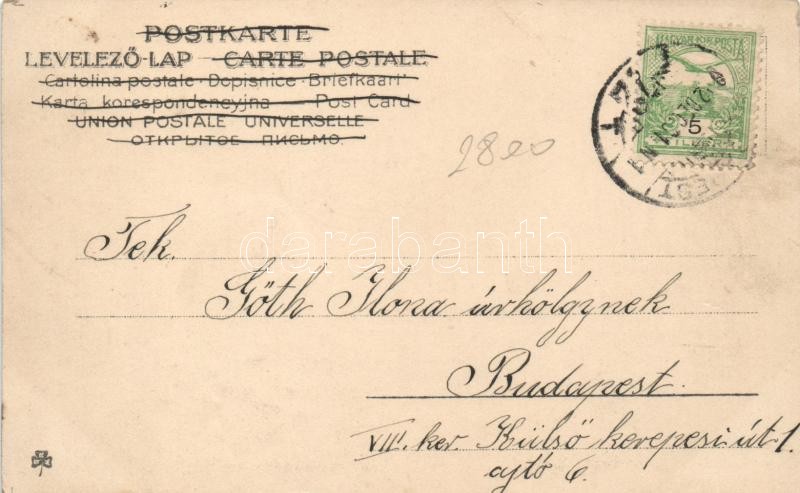 POSTKARTE
LEVELEZŐ-LAP CARTE POSTALE
Cartolina postale · Dopisnice · Briefkaart
Karta korespondencyjna — Post Card
UNION POSTALE UNIVERSELLE
ОТКРЫТОЕ ПИСЬМО.
MAGYAR KIR. POSTA
5
FILLÉR
2800
Tek.
Góth Ilona úrhölgynek
darabanth
Budapest.
VIII. ker. Külső kerepesi út 1.
ajtó 6.